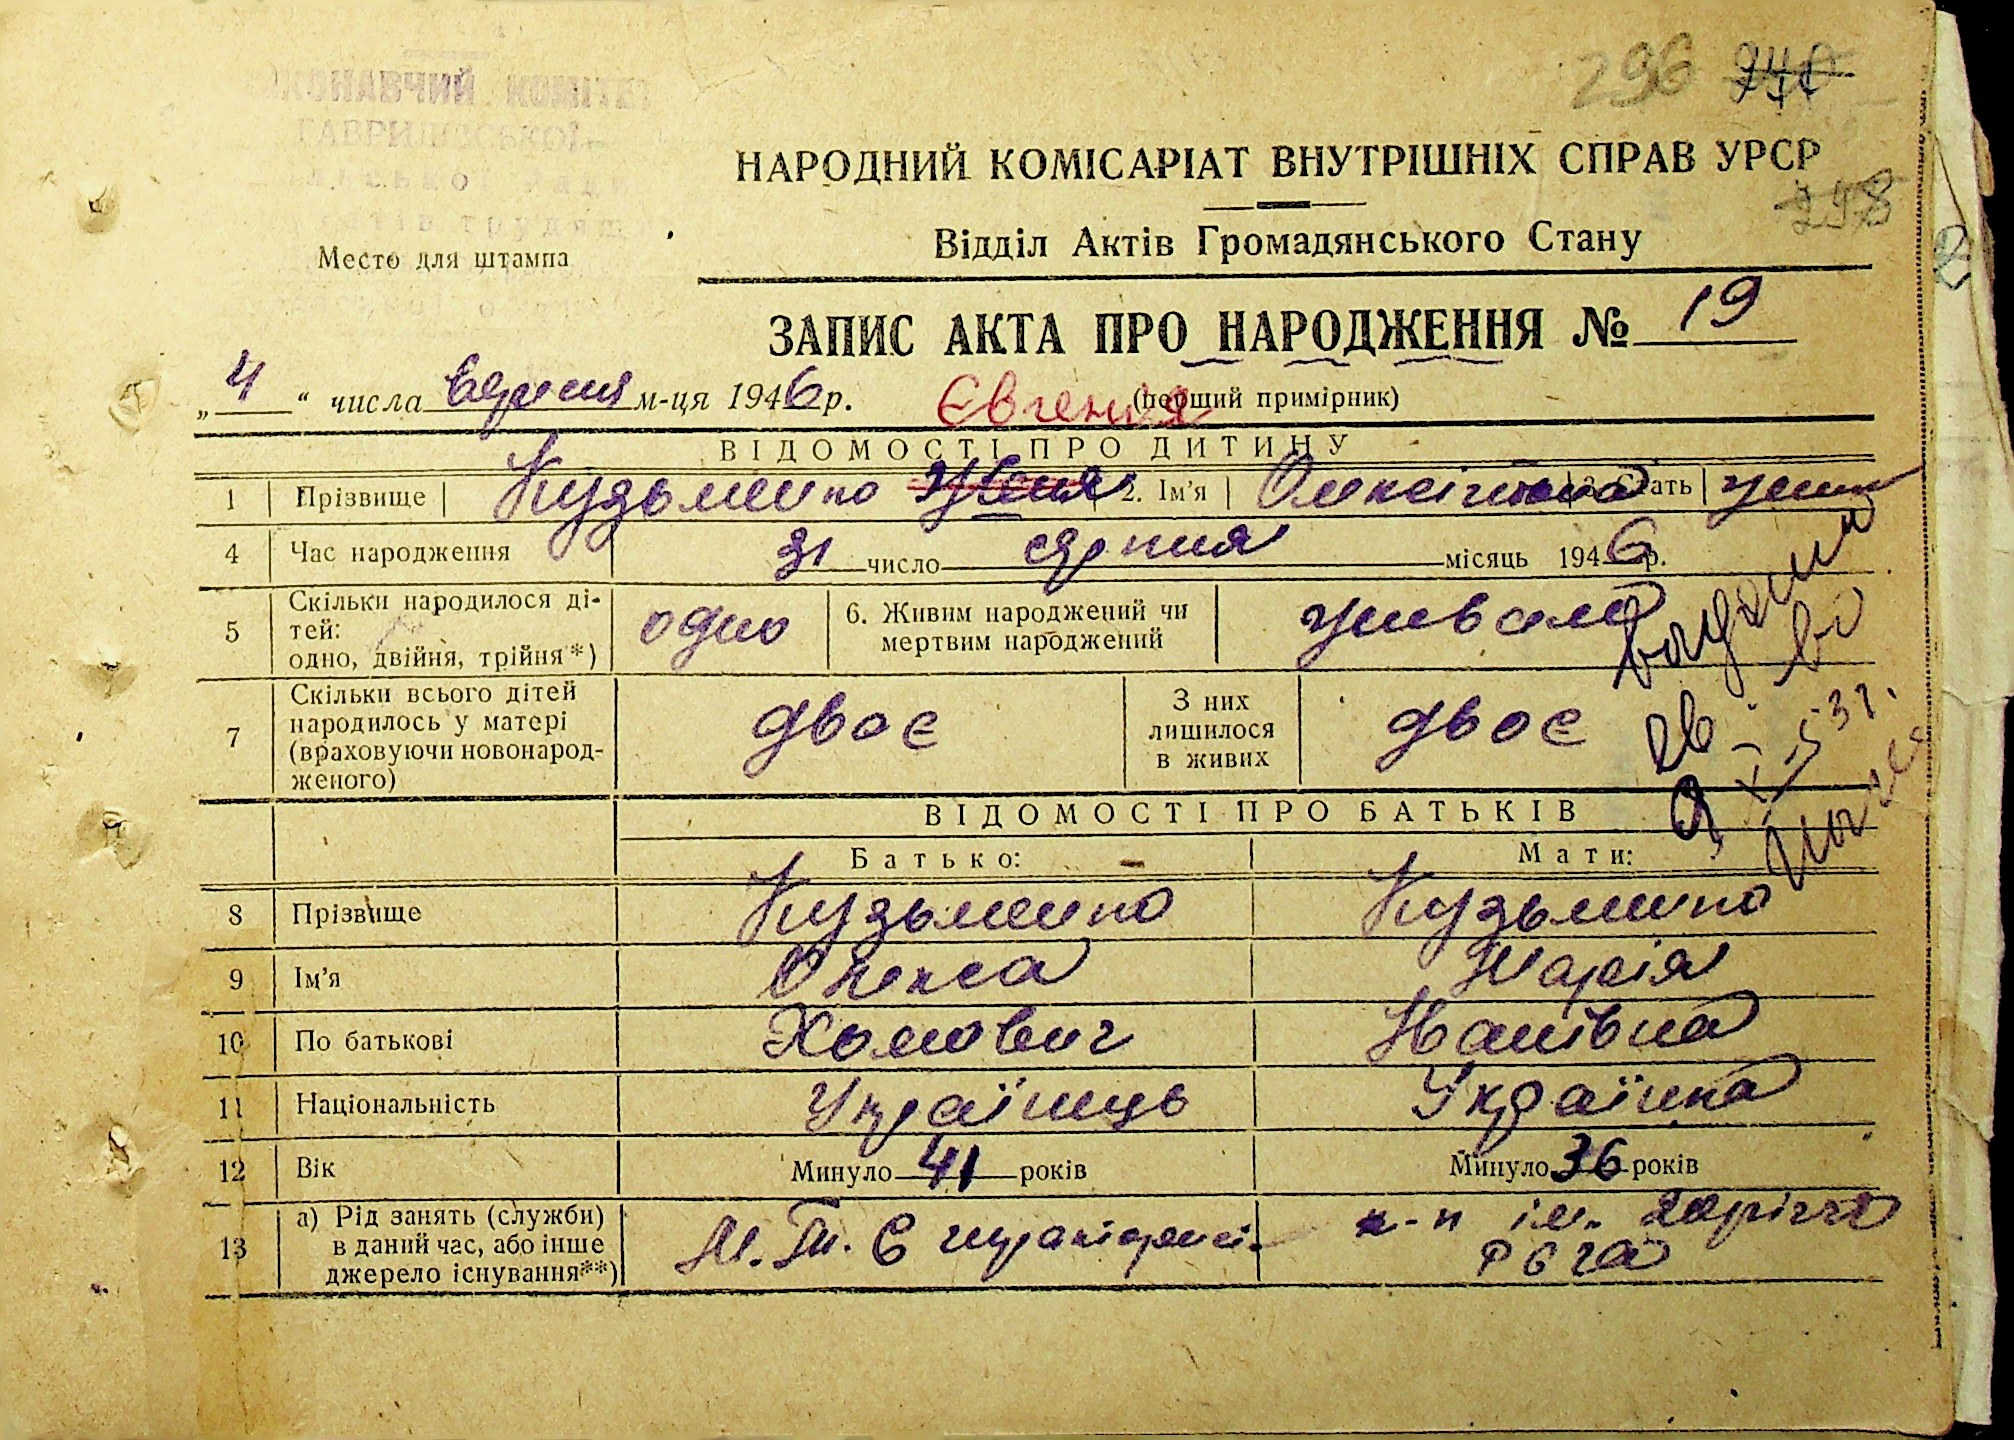 296 241
НАРОДНИЙ КОМІСАРІАТ ВНУТРІШНІХ СПРАВ УРСР
248
Відділ Актів Громадянського Стану
Место для штампа
ЗАПИС АКТА ПРО НАРОДЖЕННЯ № 19
„4“ числа вересня м-ця 1946 р. Євгенія (перший примірник)
ВІДОМОСТІ ПРО ДИТИНУ
1 Прізвище Кузьменко Женя 2. Ім'я Олексіївна 3. Стать жен
4 Час народження 31 число серпня місяць 1946 р.
5 Скільки народилося ді-
тей:
одно, двійня, трійня*) одно 6. Живим народжений чи
мертвим народжений живам
7 Скільки всього дітей
народилось у матері
(враховуючи новонарод-
женого) двоє З них
лишилося
в живих двоє
ВІДОМОСТІ ПРО БАТЬКІВ
Батько: Мати:
8 Прізвище Кузьменко Кузьменко
9 Ім'я Олекса Марія
10 По батькові Хомович Іванівна
11 Національність Українець Українка
12 Вік Минуло 41 років Минуло 36 років
13 а) Рід занять (службы) в даний час, або інше
джерело існування**) к-п ім. 20річчя